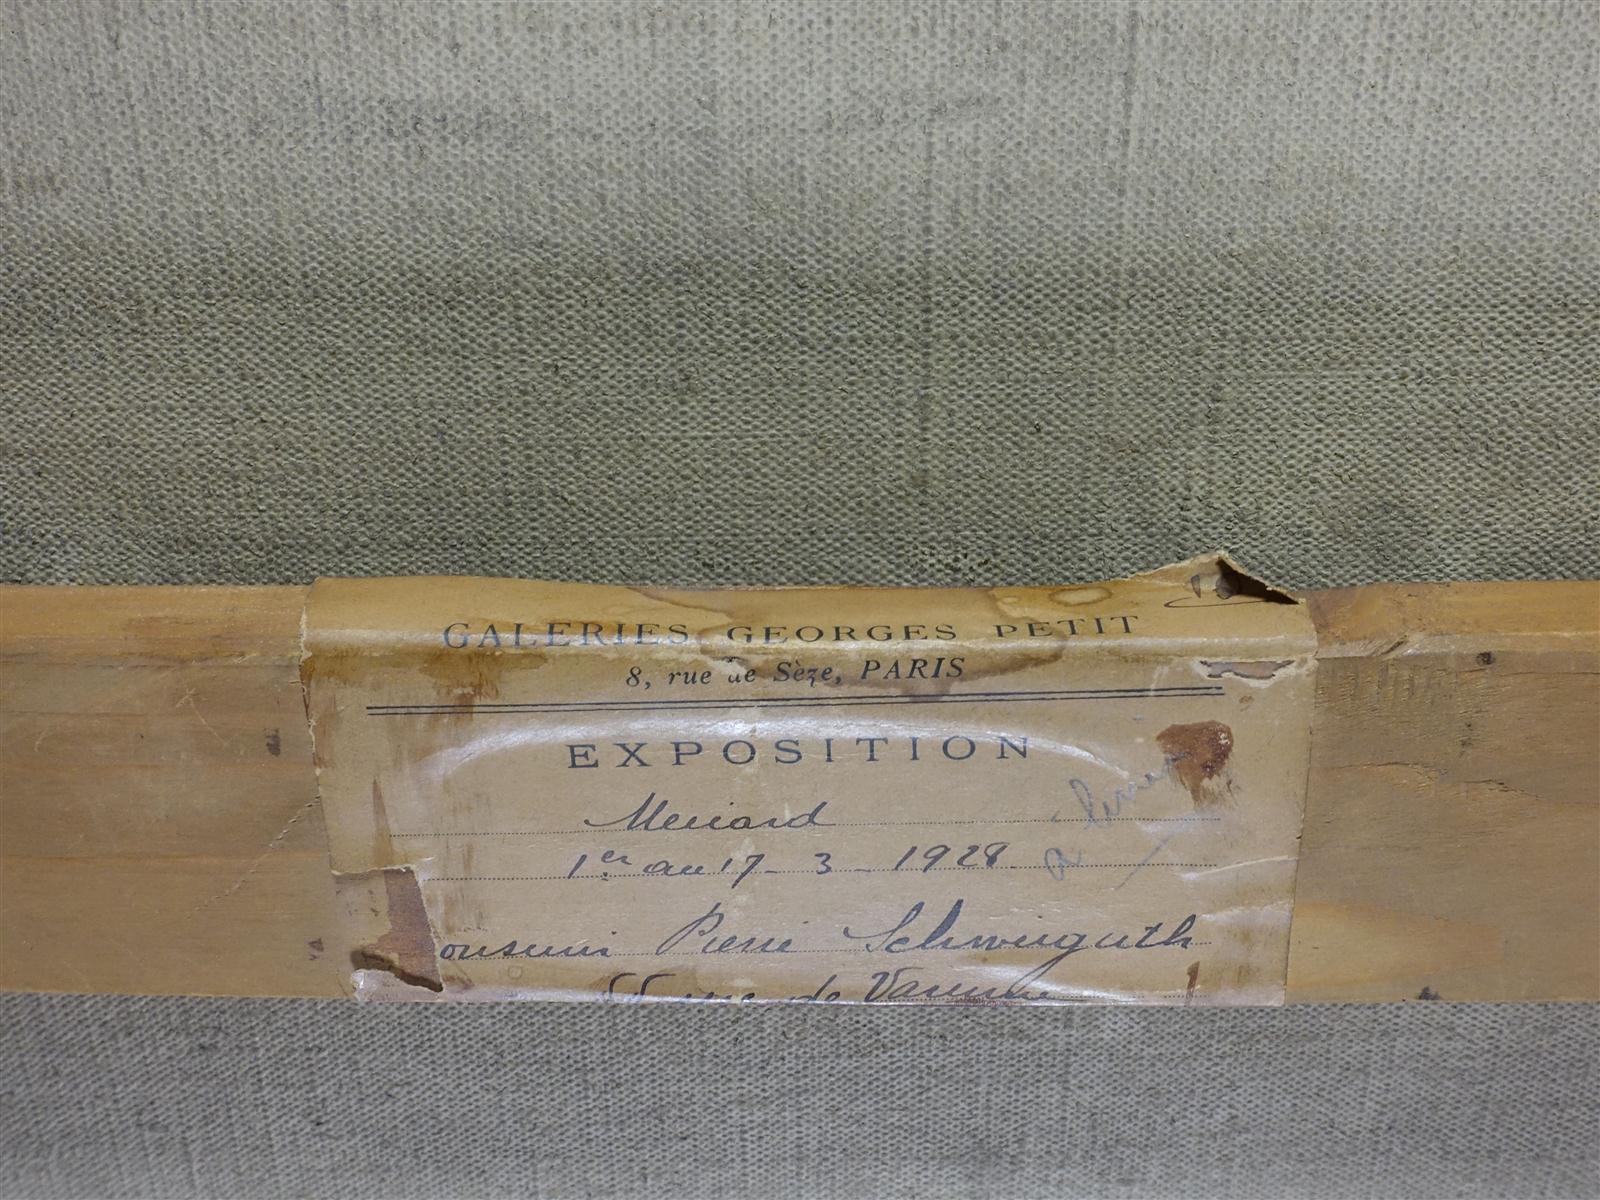 GALERIES GEORGES PETIT
8, rue de Sèze, PARIS
EXPOSITION
Menard
1er au 17 - 3 - 1928
onsieur Pierre Schweisguth
rue de Varenne